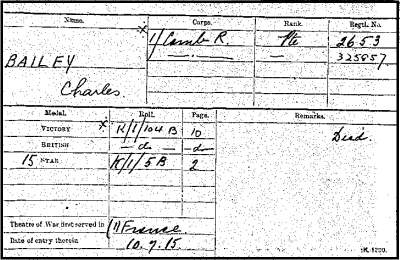 Name. Corps. Rank. Regtl. No.
BAILEY × 1/Camb R. Pte 2653
Charles. — " — — 325857
Medal. Roll. Page. Remarks.
VICTORY × K/1/104 B 10 Died.
BRITISH — do — — do —
15 STAR K/1/5 B 2
Theatre of War first served in (1) France
Date of entry therein 10.9.15.